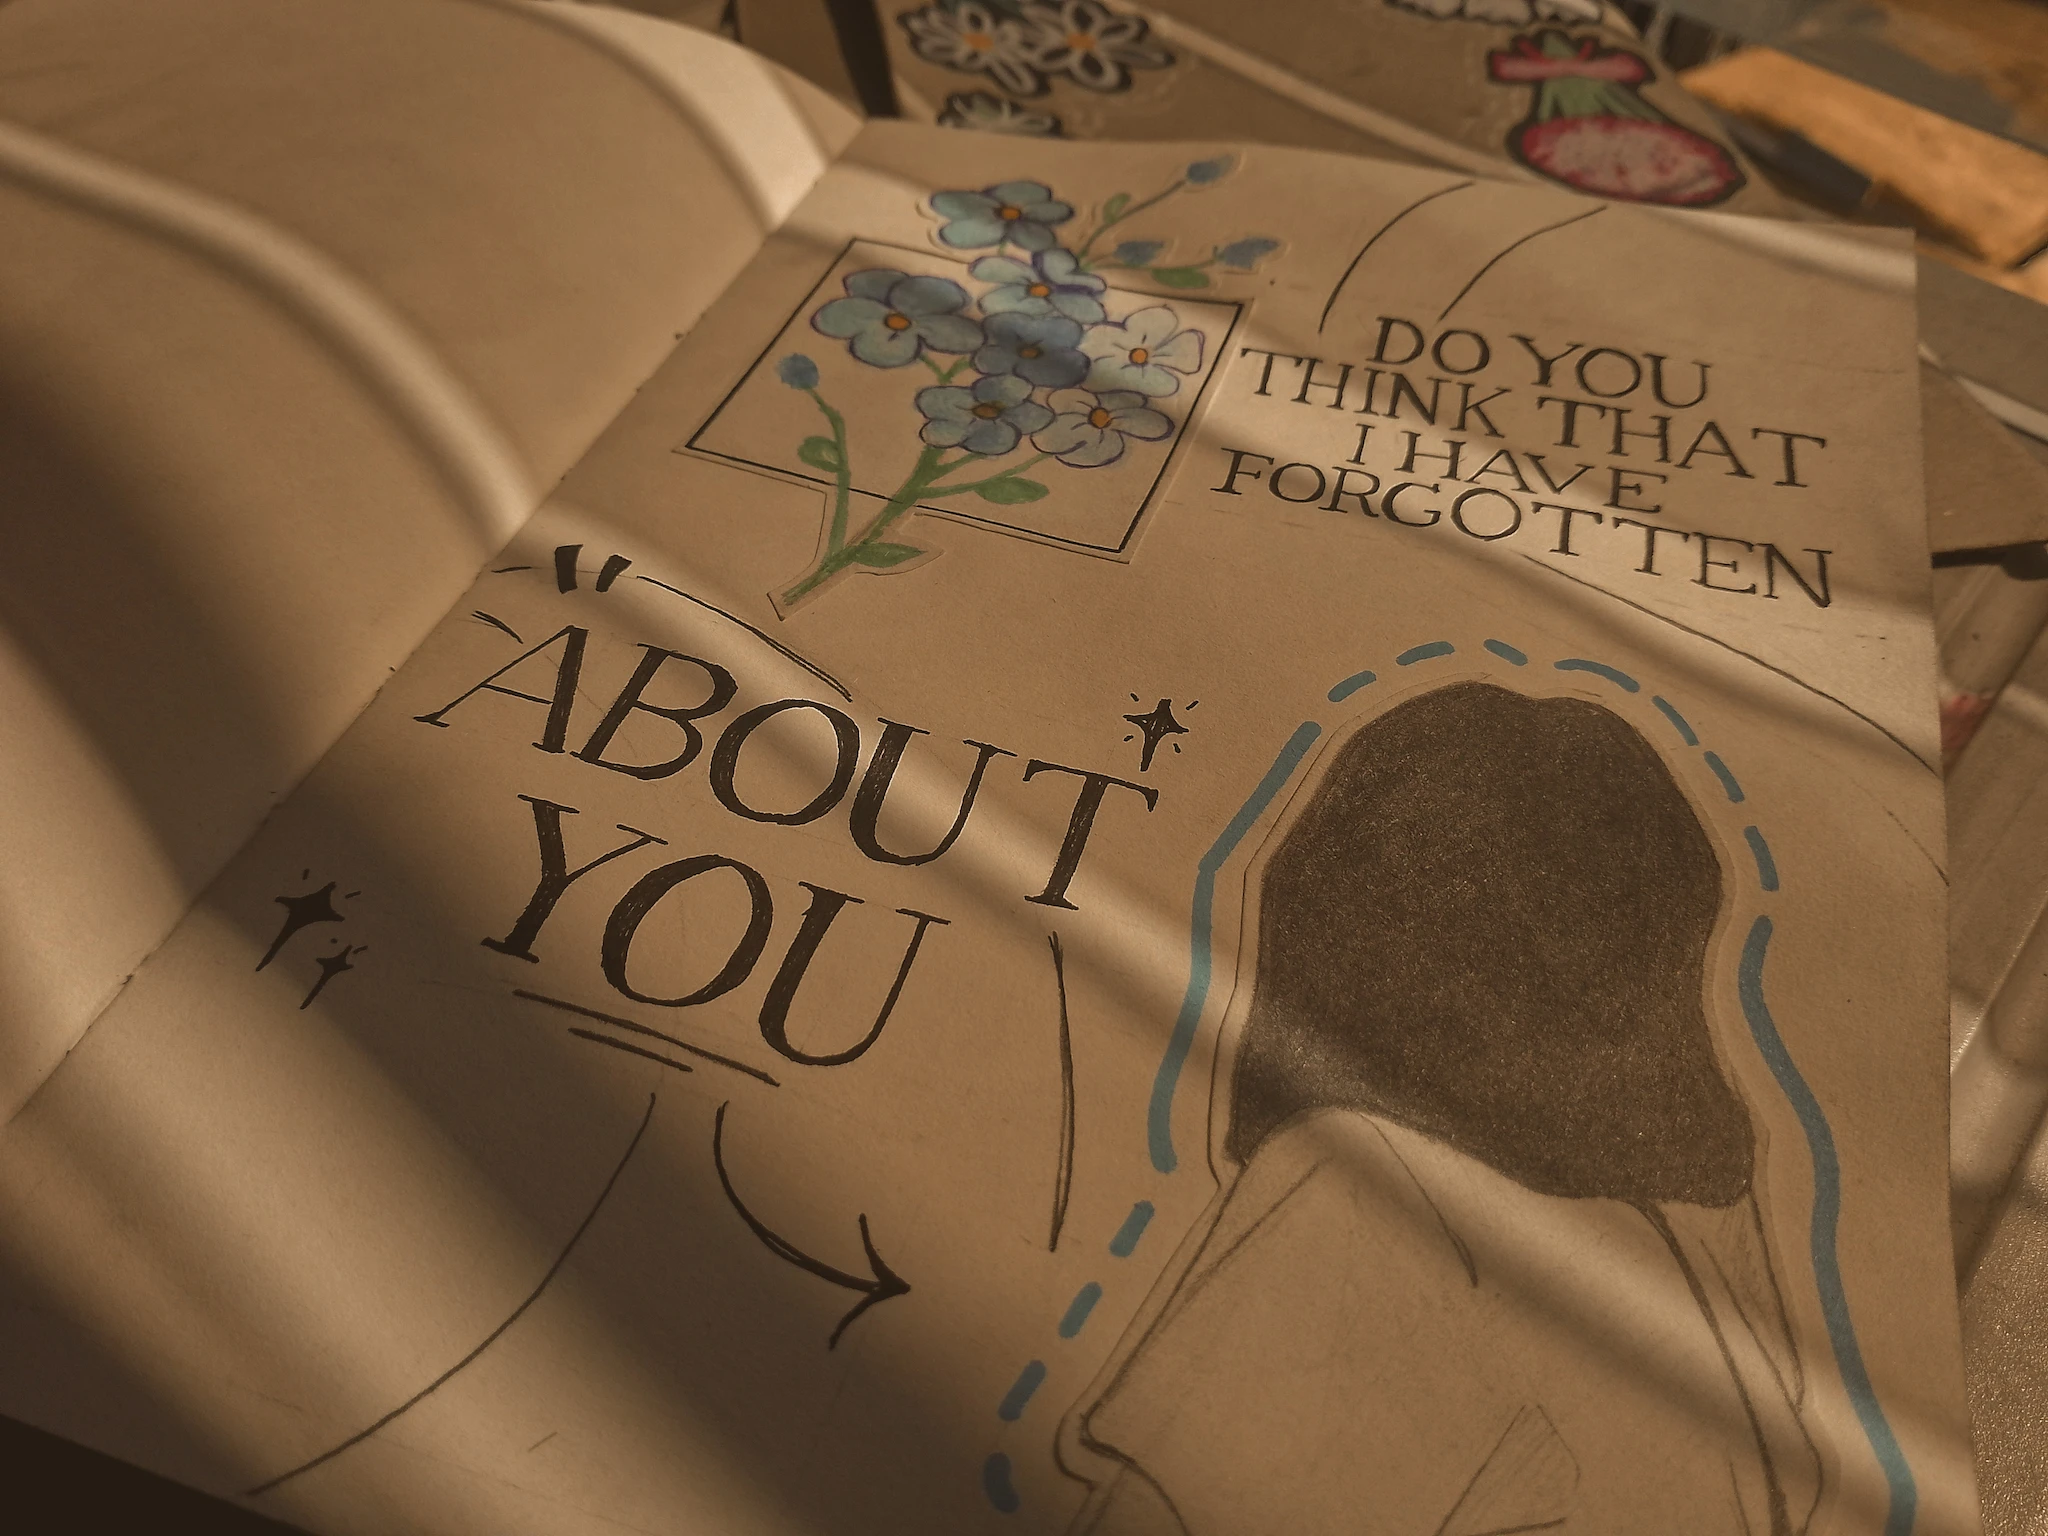 DO YOU
THINK THAT
I HAVE
FORGOTTEN
ABOUT
YOU